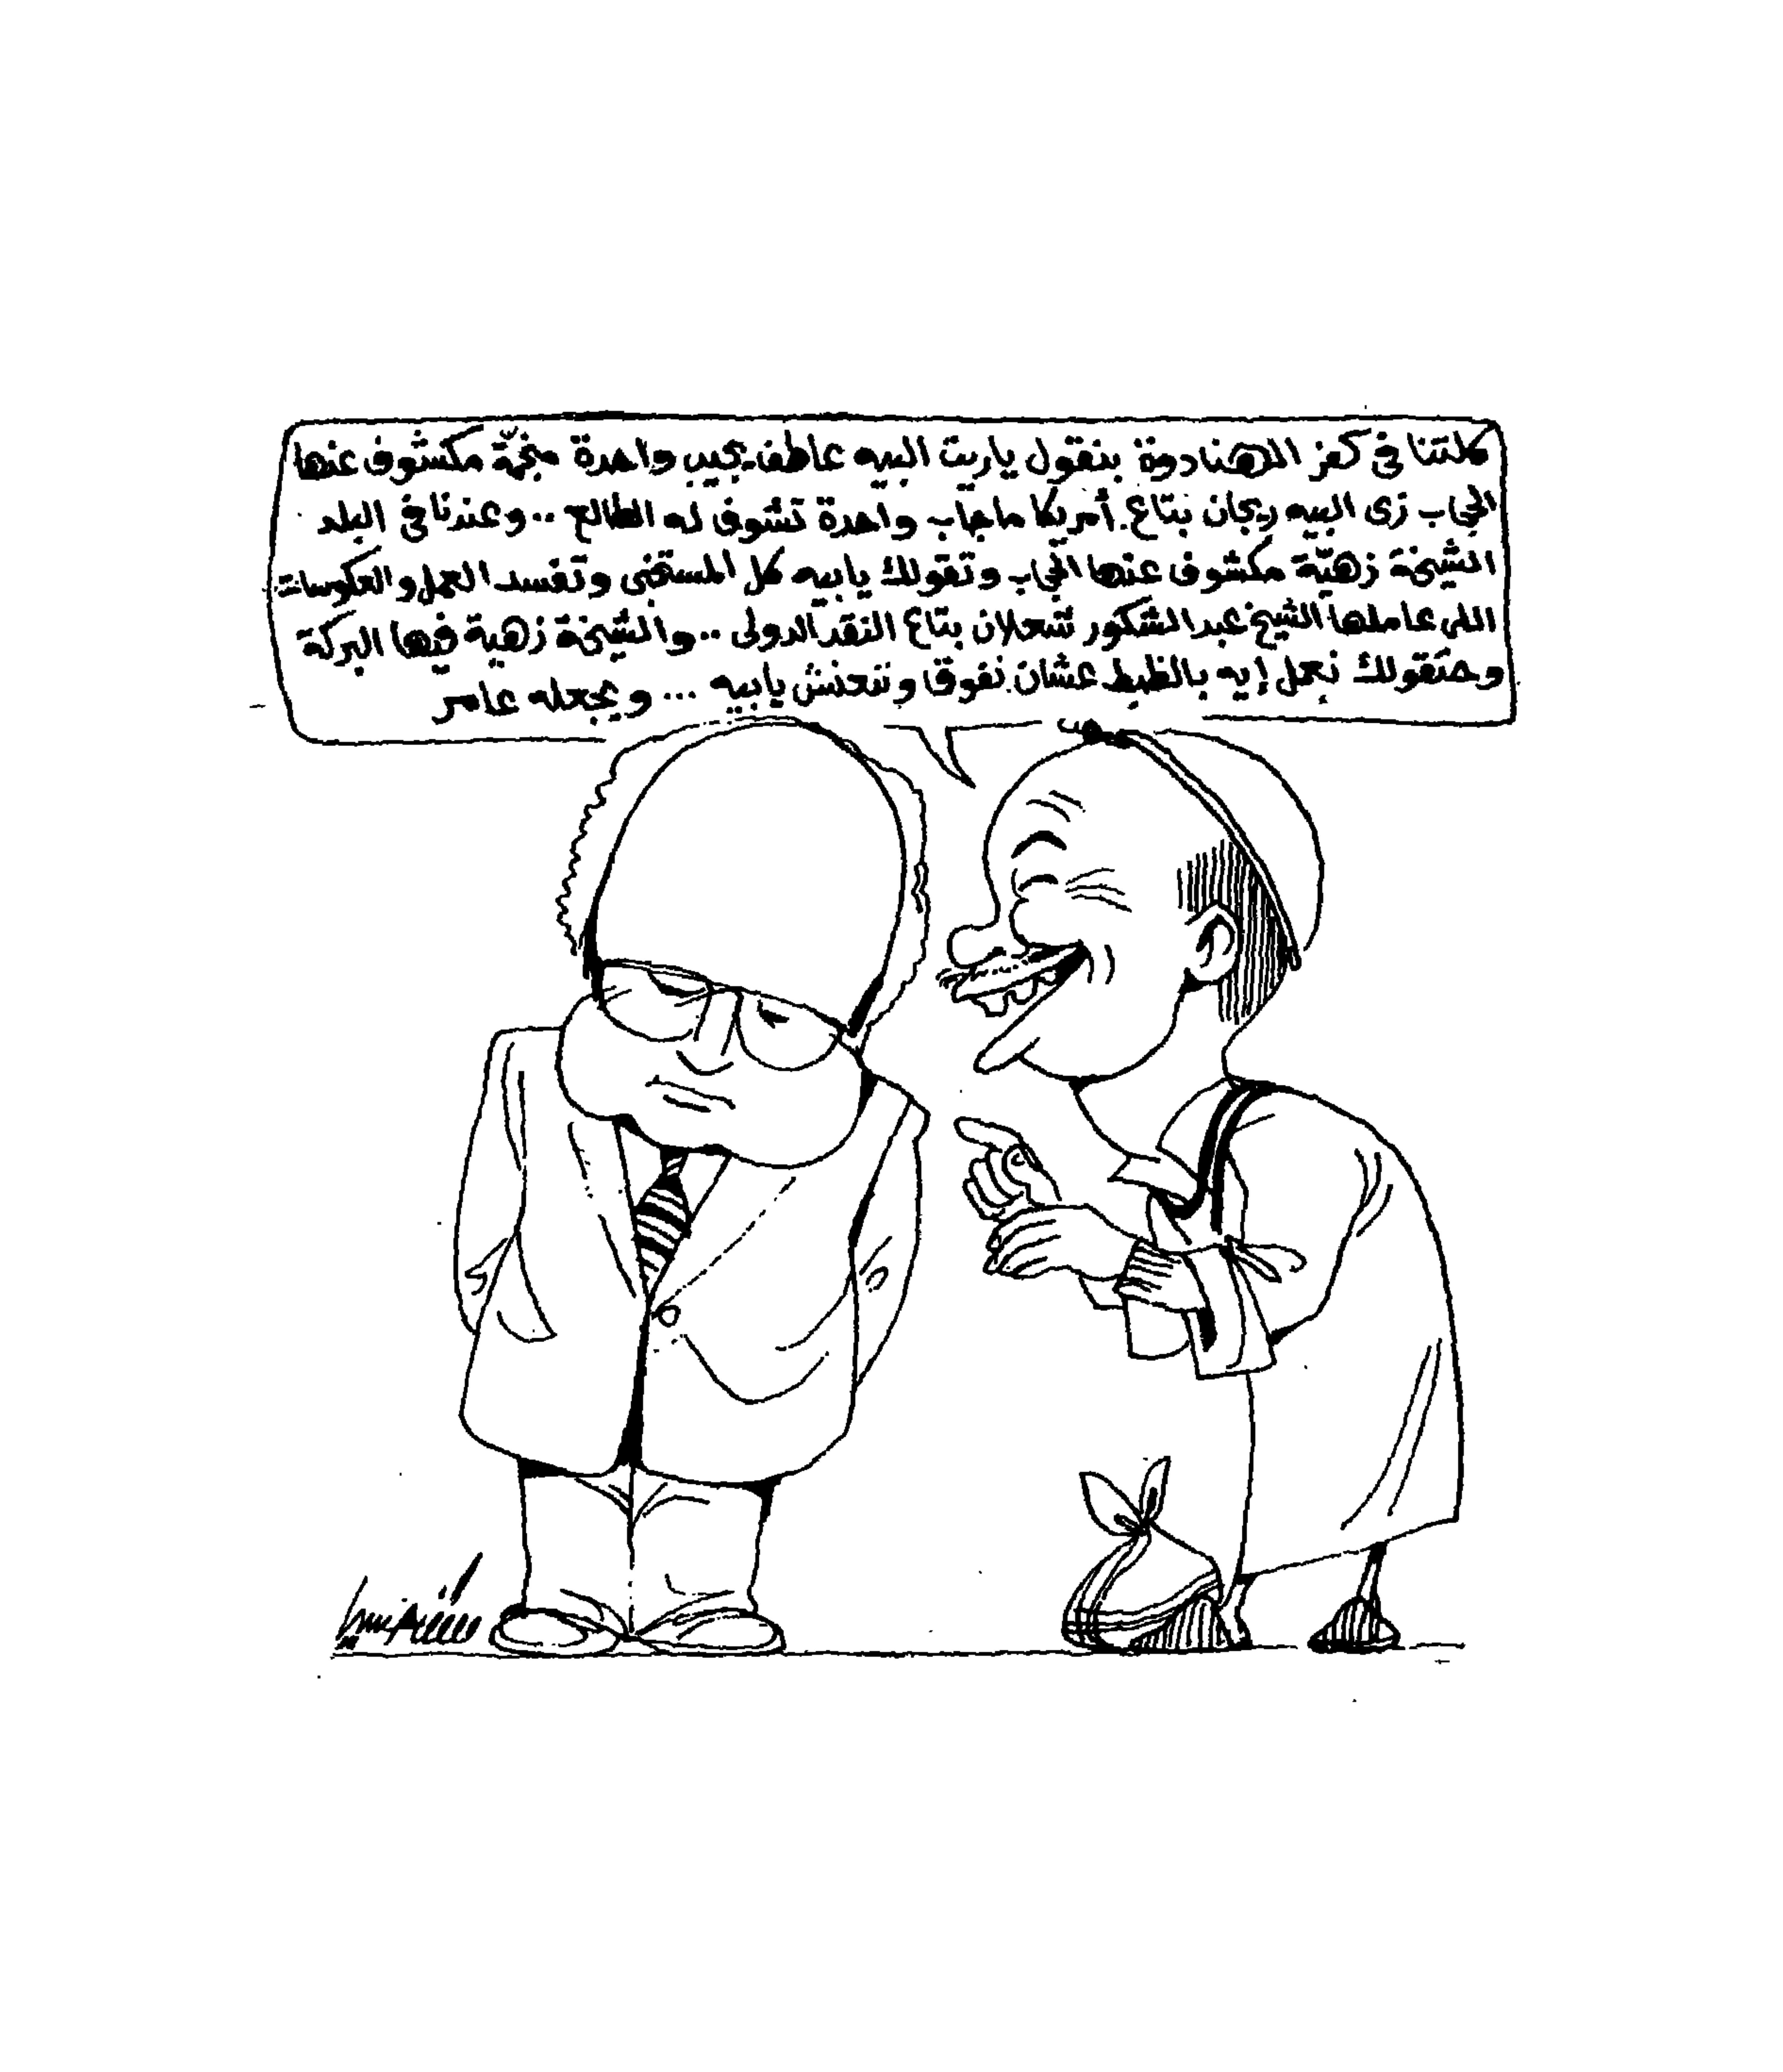 كلتنا فى كفر الهنادوة بنقول ياريت البيه عاطف يجيب واحدة منجّمة مكشوف عنها
الحجاب زى البيه ريجان بتاع أمريكا ماجاب واحدة تشوف له الطالع .. وعندنا فى البلد
الشيخة زهيّة مكشوف عنها الحجاب وتقولك يابيه كل المستخبى وتفسد العمل والعكوسات
اللى عاملها الشيخ عبد الشكور شعلان بتاع النقد الدولى .. والشيخة زهية فيها البركة
وحتقولك نعمل إيه بالظبط عشان نفوق وننعنش يابيه ... ويجعله عامر